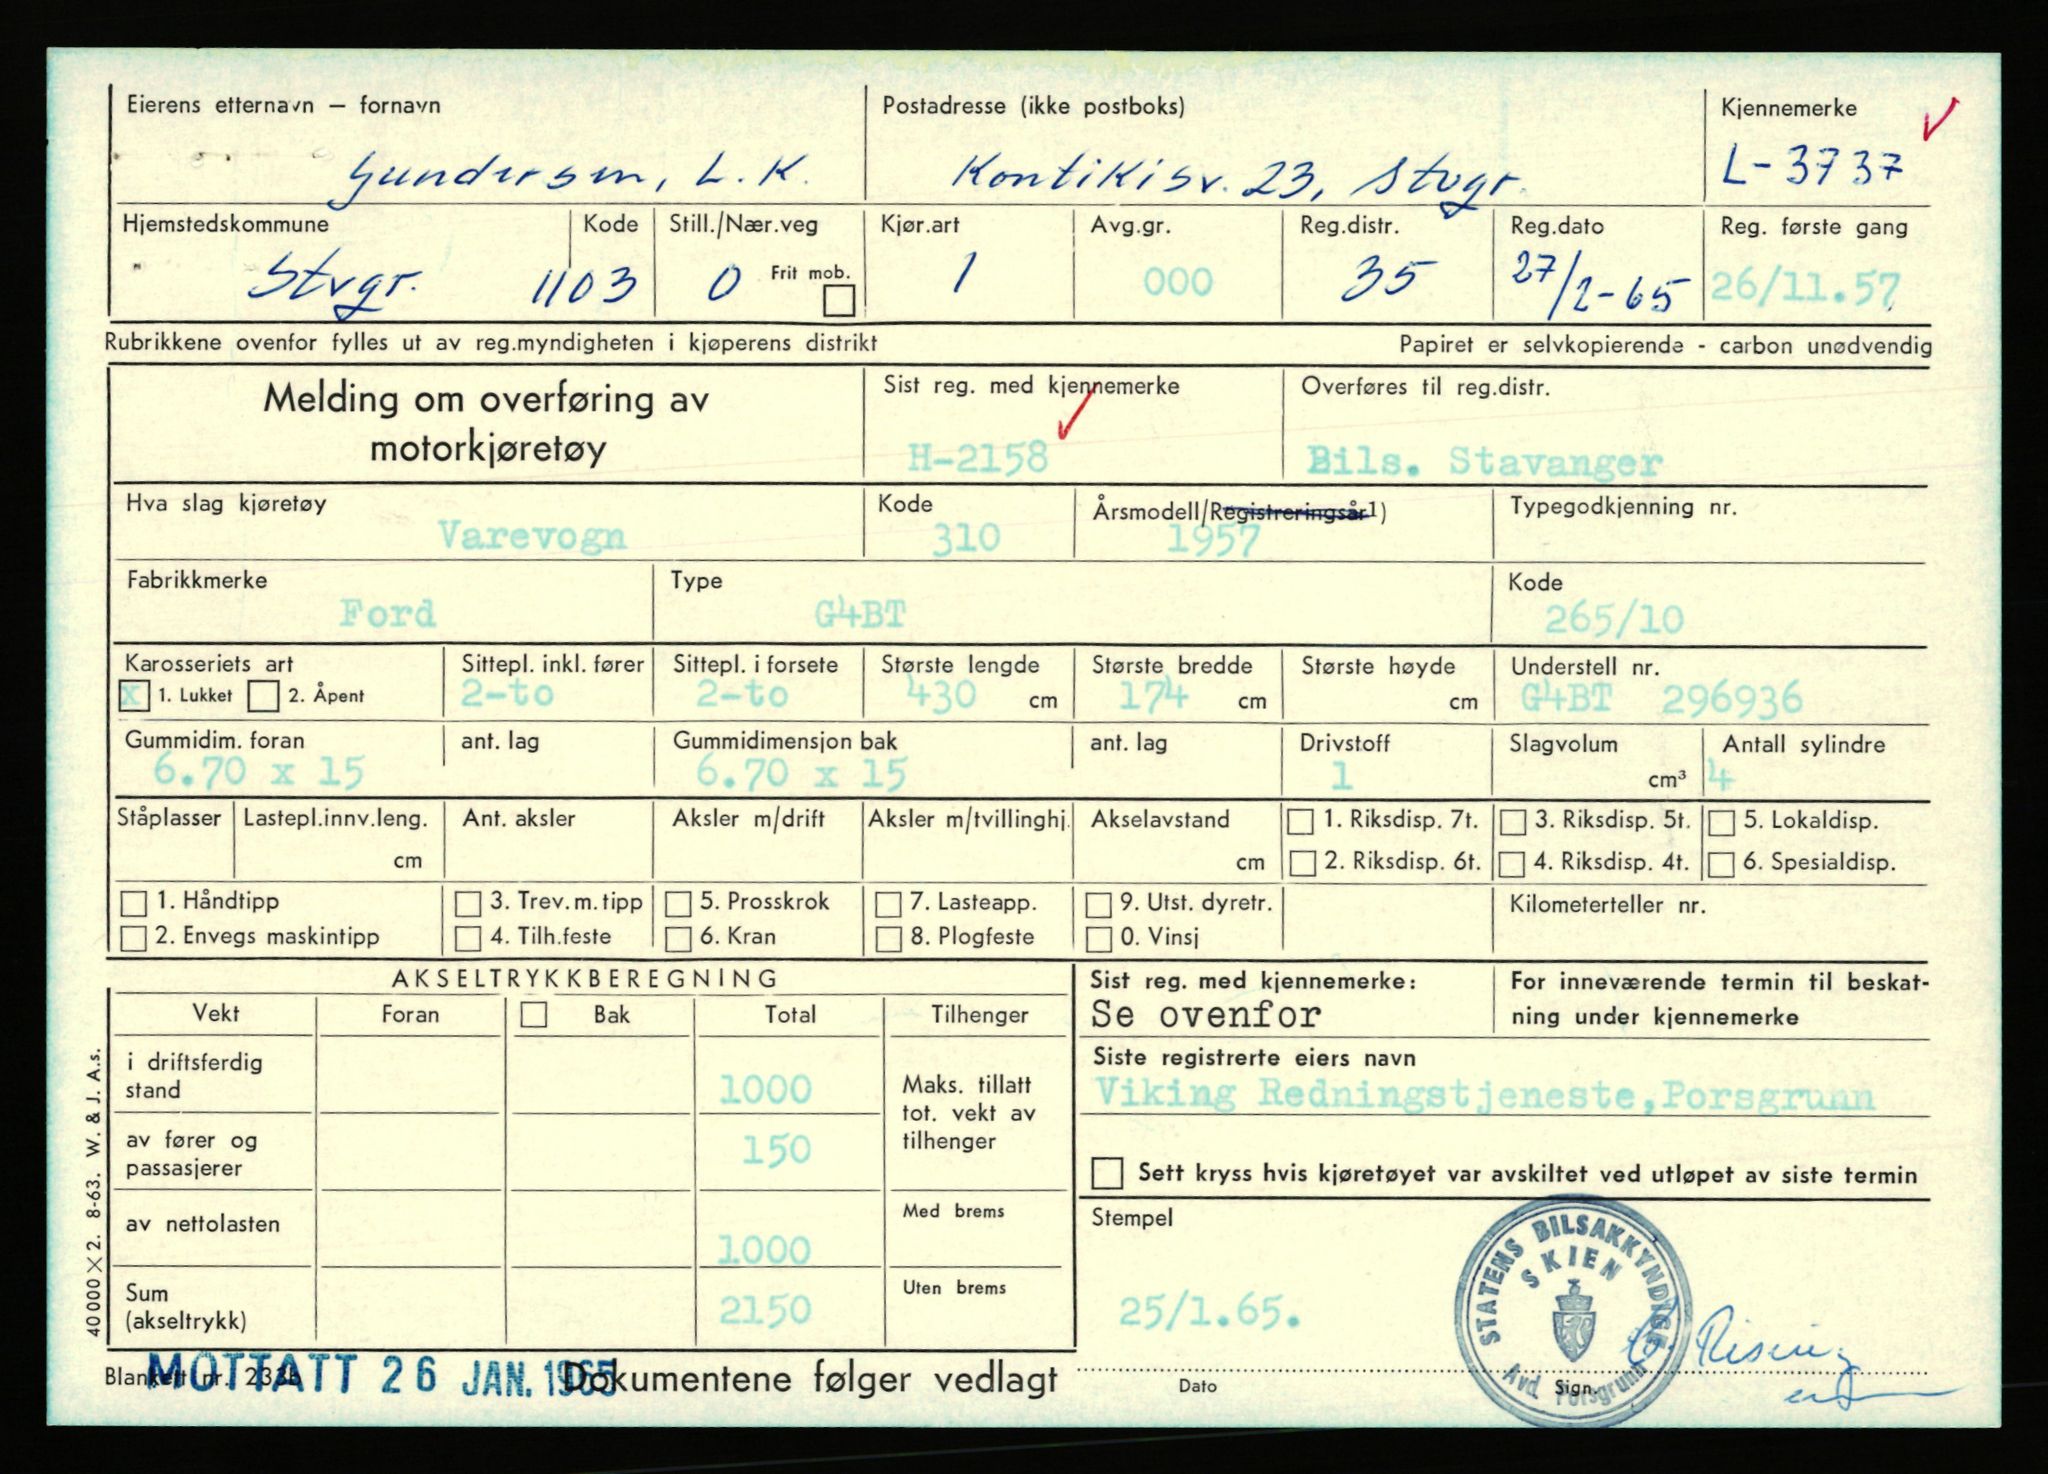 Eierens etternavn – fornavn
Postadresse (ikke postboks)
Kjennemerke
Gundersen, L. K.
Kontikisv. 23, Stvgr.
L-3737
Hjemstedskommune
Kode
Still./Nær.veg
Kjør.art
Avg.gr.
Reg.distr.
Reg.dato
Reg. første gang
Stvgr.
1103
0
Frit mob.
1
000
35
27/2-65
26/11.57
Rubrikkene ovenfor fylles ut av reg.myndigheten i kjøperens distrikt
Papiret er selvkopierende - carbon unødvendig
Melding om overføring av
motorkjøretøy
Sist reg. med kjennemerke
H-2158
Overføres til reg.distr.
Bils. Stavanger
Hva slag kjøretøy
Varevogn
Kode
310
Årsmodell/Registreringsår1)
1957
Typegodkjenning nr.
Fabrikkmerke
Ford
Type
G4BT
Kode
265/10
Karosseriets art
x 1. Lukket 2. Åpent
Sittepl. inkl. fører
2-to
Sittepl. i forsete
2-to
Største lengde
430 cm
Største bredde
174 cm
Største høyde
cm
Understell nr.
G4BT 296936
Gummidim. foran
6.70 x 15
ant. lag
Gummidimensjon bak
6.70 x 15
ant. lag
Drivstoff
1
Slagvolum
cm³
Antall sylindre
4
Ståplasser
Lastepl.innv.leng.
cm
Ant. aksler
Aksler m/drift
Aksler m/tvillinghj.
Akselavstand
cm
1. Riksdisp. 7t.
2. Riksdisp. 6t.
3. Riksdisp. 5t.
4. Riksdisp. 4t.
5. Lokaldisp.
6. Spesialdisp.
1. Håndtipp
2. Envegs maskintipp
3. Trev. m. tipp
4. Tilh.feste
5. Prosskrok
6. Kran
7. Lasteapp.
8. Plogfeste
9. Utst. dyretr.
0. Vinsj
Kilometerteller nr.
AKSELTRYKKBEREGNING
Vekt
Foran
Bak
Total
Tilhenger
i driftsferdig
stand
1000
av fører og
passasjerer
150
av nettolasten
1000
Sum
(akseltrykk)
2150
Maks. tillatt
tot. vekt av
tilhenger
Med brems
Uten brems
Sist reg. med kjennemerke:
Se ovenfor
For inneværende termin til beskat-
ning under kjennemerke
Siste registrerte eiers navn
Viking Redningstjeneste,Porsgrunn
Sett kryss hvis kjøretøyet var avskiltet ved utløpet av siste termin
Stempel
25/1.65.
STATENS BILSAKKYNDIGE
SKIEN
Avd. Porsgrunn
Rising
Dato
Sign.
40000 X 2. 8-63. W. & J. A.s.
Blankett nr. 233b
MOTTATT 26 JAN. 1965
Dokumentene følger vedlagt